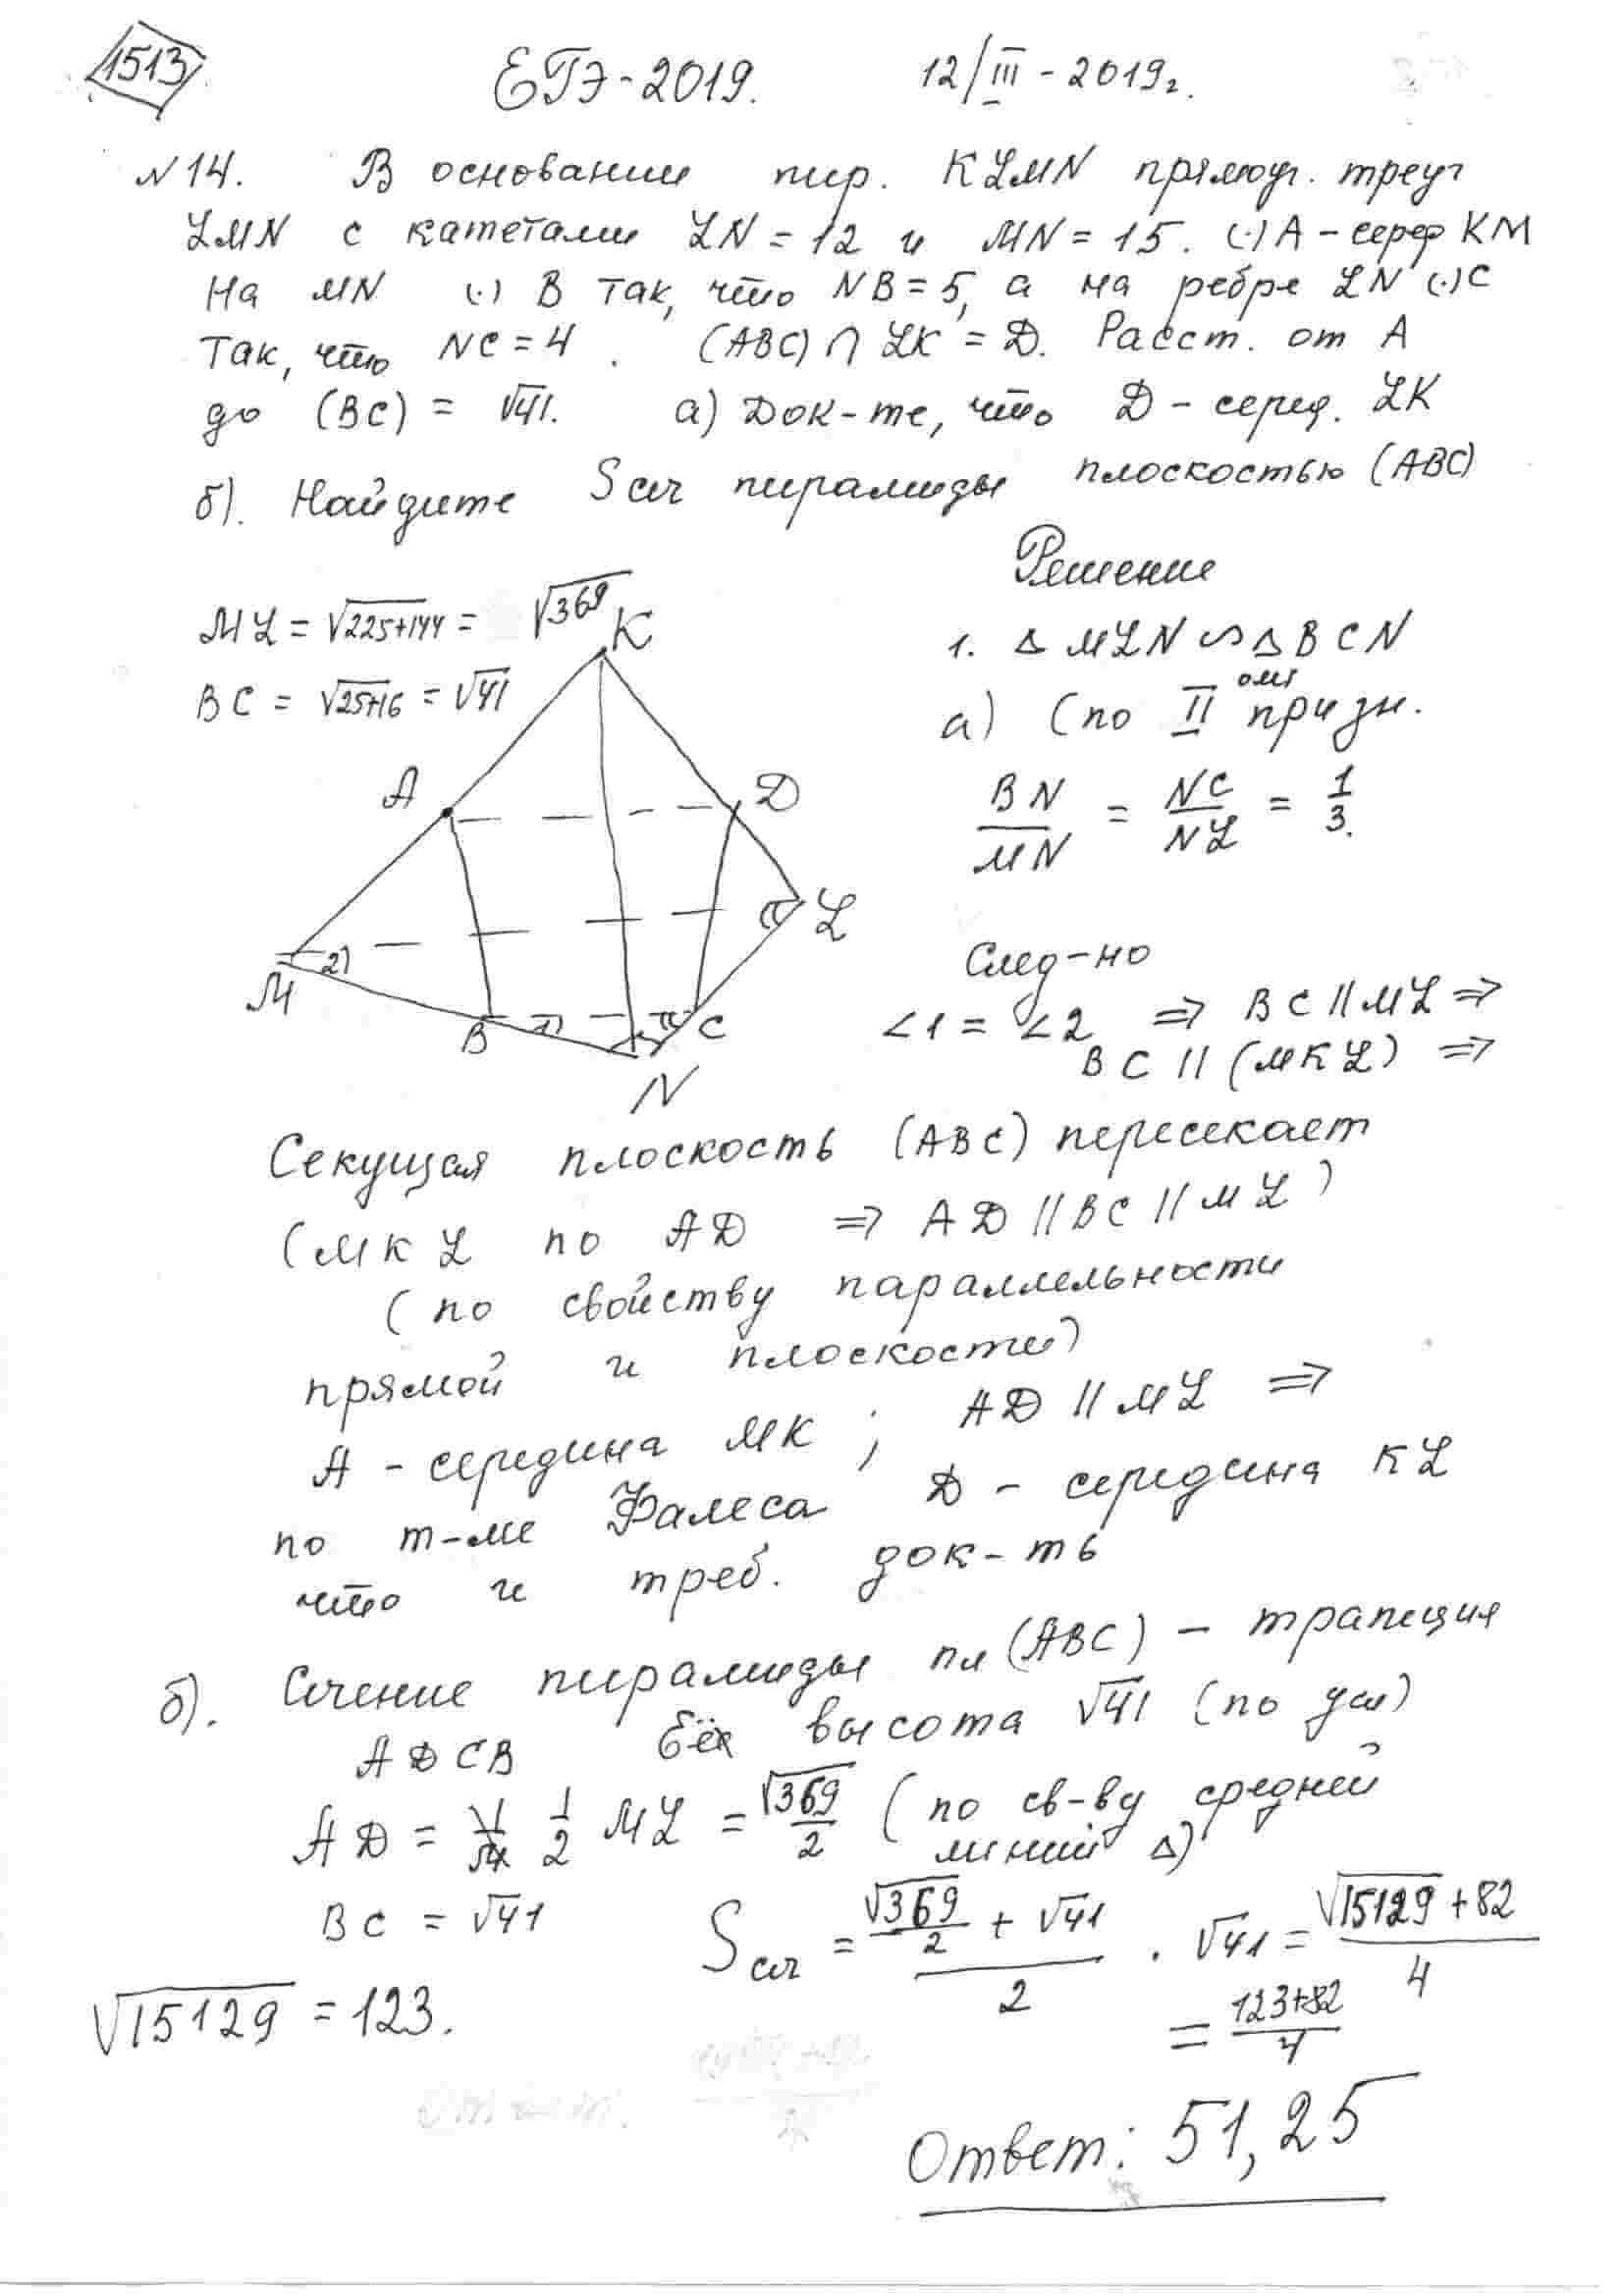 1513
ЕГЭ-2019. 12/III-2019г.
N14. В основании пир. KLMN прямоуг. треуг
LMN с катетами LN = 12 и MN = 15. (·) A - серед KM
На MN (·) B так, что NB = 5, а на ребре LN (·) C
так, что NC = 4. (ABC) ∩ LK = D. Расст. от A
до (BC) = √41. а) Док-те, что D - серед. LK
б). Найдите Sсеч пирамиды плоскостью (ABC)
Решение
ML = √225+144 = √369
BC = √25+16 = √41
K
A
D
M
2)
L
B
1)
C
N
1. △ MLN ∽ △ BCN
а) (по II ому призн.
BN/MN = NC/NL = 1/3.
След-но
∠1 = ∠2 ⇒ BC || ML ⇒
BC || (MKL) ⇒
Секущая плоскость (ABC) пересекает
(MKL по AD ⇒ AD || BC || ML)
(по свойству параллельности
прямой и плоскости)
A - середина MK; AD || ML ⇒
по т-ме Фалеса D - середина KL
что и треб. док-ть
б). Сечение пирамиды пл (ABC) - трапеция
ADCB Её высота √41 (по усл)
AD = 1/2 ML = √369/2 (по св-ву средней
линии △)
BC = √41 Sсеч = (√369/2 + √41)/2 · √41 = (√15129 + 82)/4
√15129 = 123.
= (123+82)/4
Ответ: 51,25